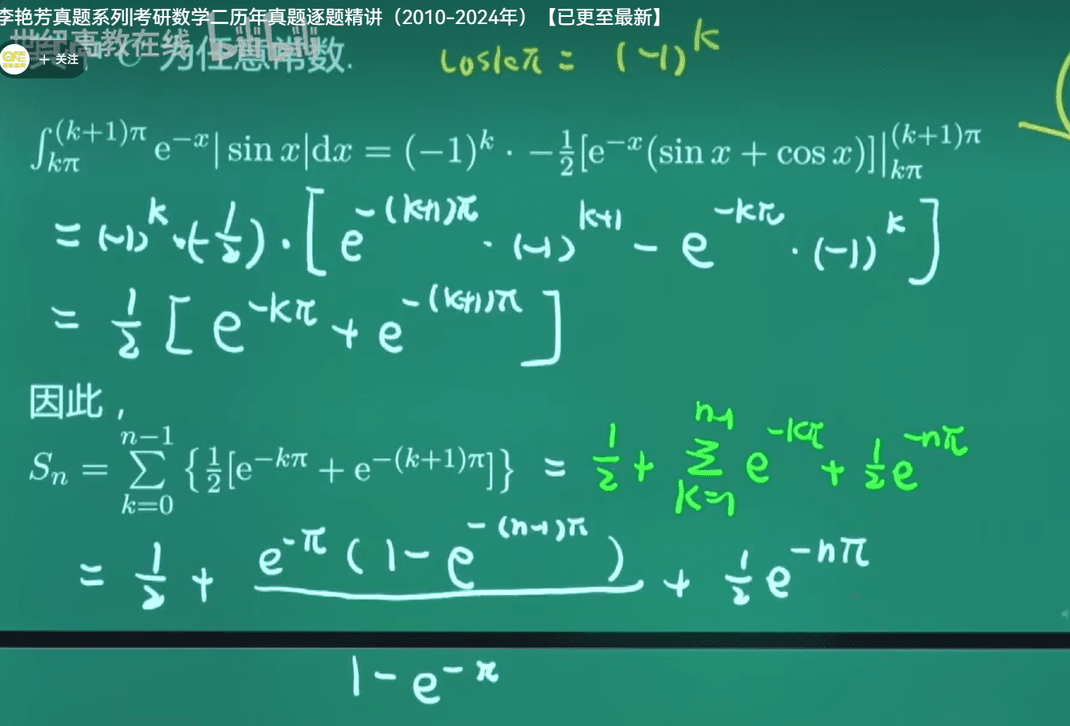 李艳芳真题系列|考研数学二历年真题逐题精讲（2010-2024年）【已更至最新】
世纪高教在线
+ 关注
C 为任意常数.
cos kπ = (-1)^k
∫_{kπ}^{(k+1)π} e^{-x}|sin x|dx = (-1)^k · -1/2[e^{-x}(sin x + cos x)]|_{kπ}^{(k+1)π}
= (-1)^k · (-1/2) · [e^{-(k+1)π} · (-1)^{k+1} - e^{-kπ} · (-1)^k]
= 1/2 [e^{-kπ} + e^{-(k+1)π}]
因此，
S_n = ∑_{k=0}^{n-1} {1/2[e^{-kπ} + e^{-(k+1)π}]} = 1/2 + ∑_{k=1}^{n-1} e^{-kπ} + 1/2 e^{-nπ}
= 1/2 + e^{-π}(1 - e^{-(n-1)π}) / (1 - e^{-π}) + 1/2 e^{-nπ}